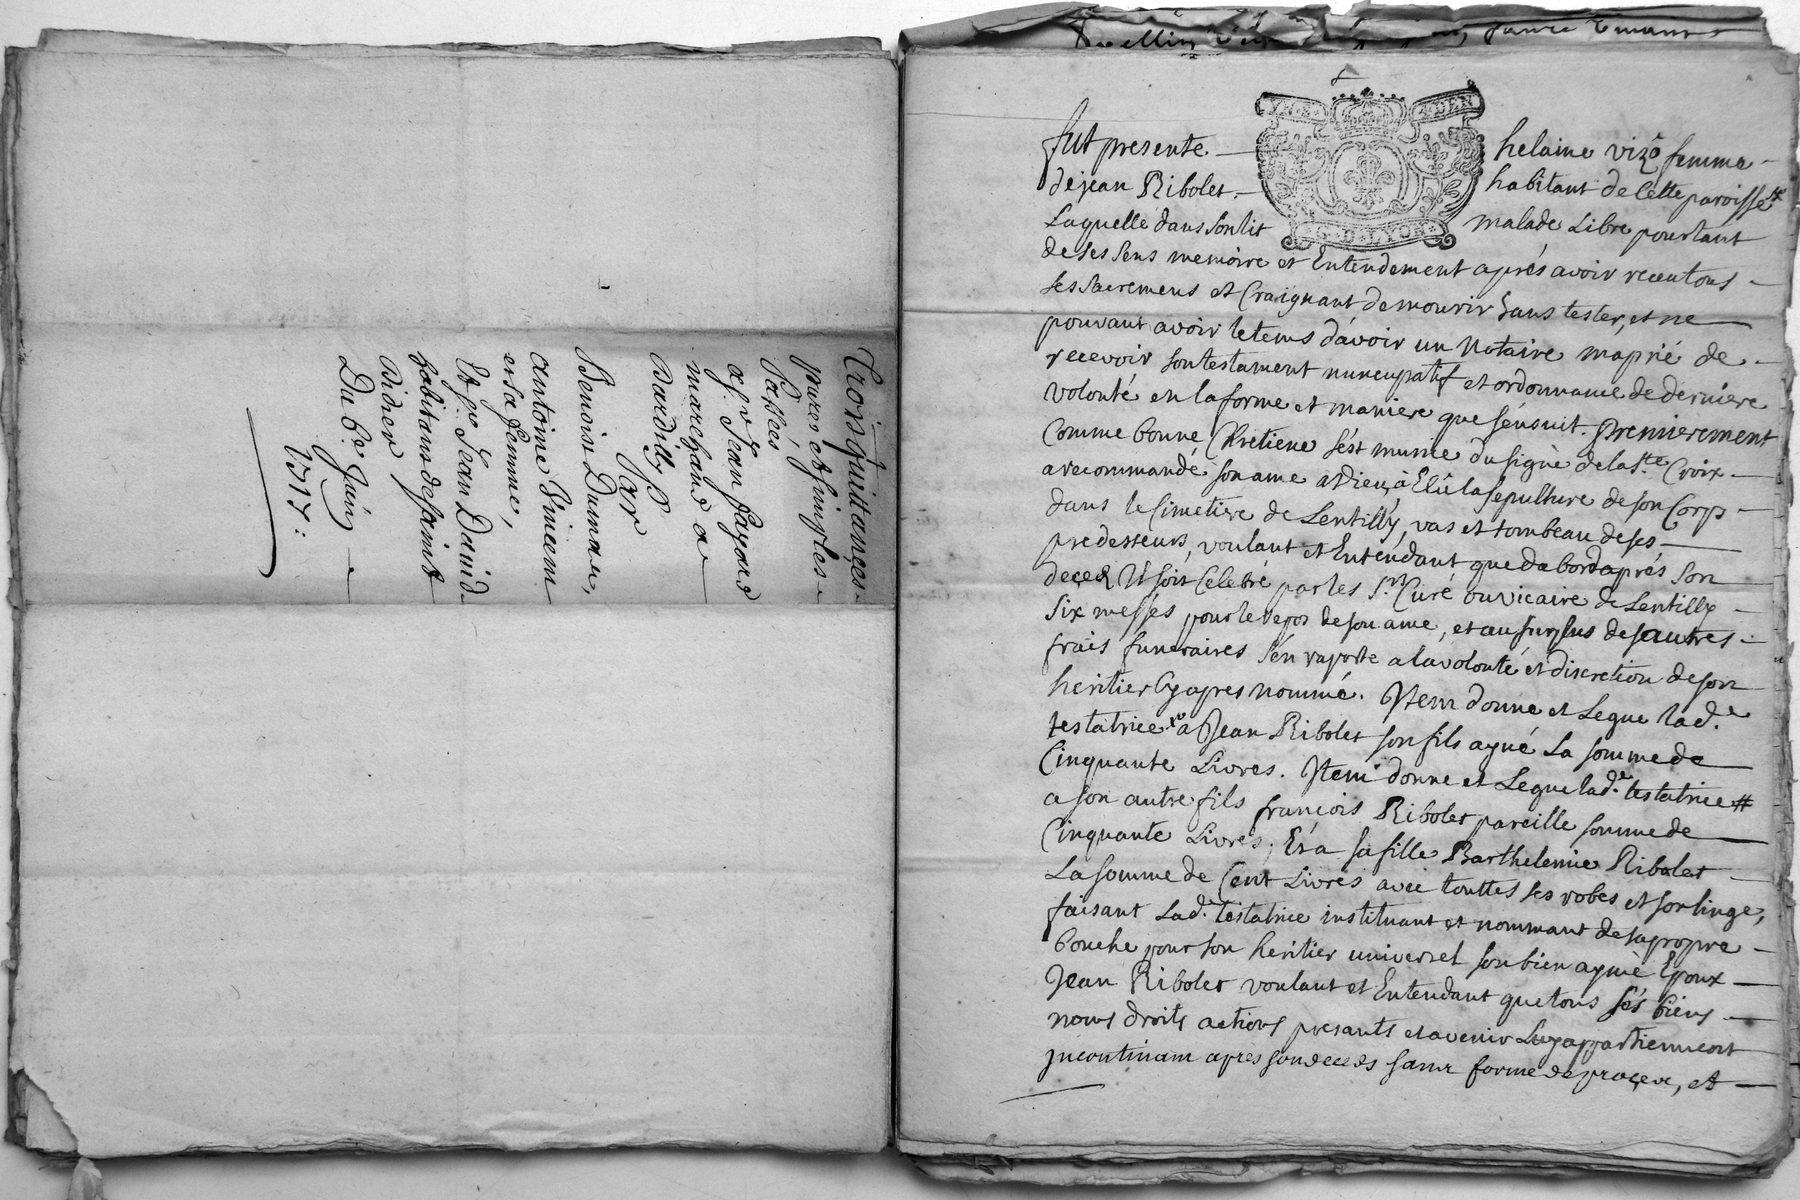 Trois quittances
pures et simples
Passées
a sr. Jean fayard
marchand a
Bardilly
Par
Benoist Dumas,
Antoine Vincent
et sa femme,
Et sr. Jean David
habitans de saint
Didier
Du 6e. Juin
1717:
fut presente helaine vizo femme
de jean Ribolet habitant de Cette paroisse
Laquelle dans son lit malade Libre pourtant
de ses sens memoire et Entendement aprés avoir receu tous
ses sacremens et Craignant de mourir sans tester, et ne
pouvant avoir le tems d'avoir un Notaire m'a prié de
recevoir son testament nuncupatif et ordonnance de derniere
volonté en la forme et maniere que s'ensuit. premierement
Comme bonne Chretiene s'est munie du signe de la Ste. Croix
a recommandé son ame a Dieu, à Elû la sepulture de son Corp
dans le Cimetiere de Lentilly, vas et tombeau de ses
predesseurs, voulant et Entendant que dabord aprés son
decez Il soit Celebré par les Srs. Curé ou vicaire de Lentilly
six messes pour le repos de son ame, et au surplus des autres
frais funeraires s'en raporte a la volonté et discretion de son
heritier Cy apres nommé. Item donne et Legue lade.
testatrice a Jean Ribolet son fils ayné La somme de
Cinquante Livres. Item donne et Legue lade. testatrice #
a son autre fils françois Ribolet pareille somme de
Cinquante Livres; Et a sa fille Barthelemie Ribolet
La somme de Cent Livres avec touttes ses robes et son linge,
faisant Lade. testatrice instituant et nommant de sa propre
bouche pour son heritier universel son bien aymé Epoux
Jean Ribolet voulant et Entendant que tous ses biens
noms droits actions presants et avenir Luy appartiennent
Incontinant apres son deceds sans forme de proçeve, et